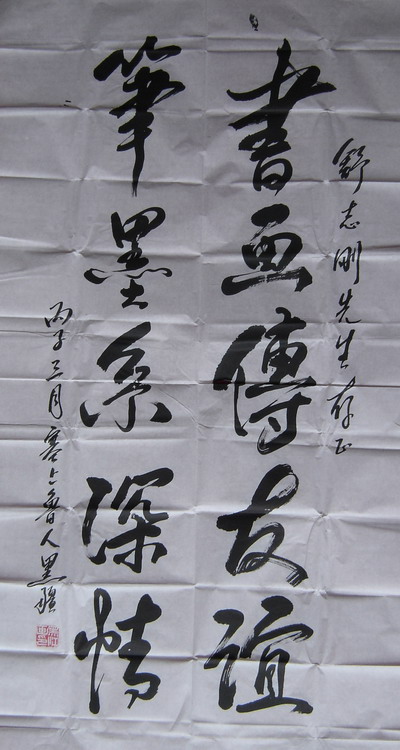 舒志刚先生存正
書画傳友谊
筆墨系深情
丙子三月塞上鲁人墨